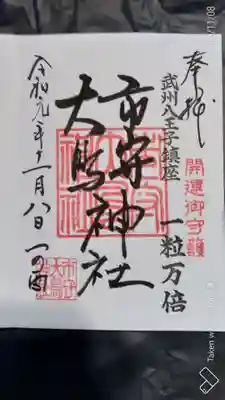 奉拝
武州八王子鎮座
開運御守護
一粒万倍
市守神社
大鳥神社
令和元年十一月八日 一の酉
市守
大鳥
Taken w
11/08